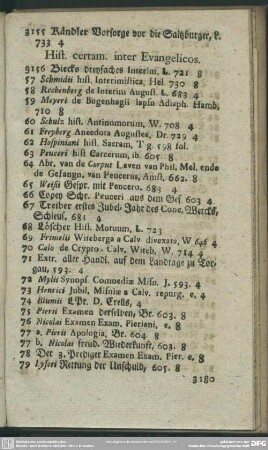 3155 Kändler Vorsorge vor die Saltzburger, L.
733 4
Hist. certam. inter Evangelicos.
3156 Biecks dreyfaches Interim, L. 721 8
57 Schmidii hist. Interimistica, Hel. 730 8
58 Rechenberg de Interim August. L. 683 4
59 Meyeri de Bugenhagii lapsu Adiaph. Hamb.
710 8
60 Schulz hist. Antinomorum, W. 708 4
61 Freyberg Anecdota Augustea, Dr. 729 4
62 Hospiniani hist. Sacram, T g. 598 fol.
63 Peuceri hist Carcerum, ib. 605 8
64 Abr. van de Corput Leven van Phil. Mel. ende
de Gefangn. van Peucerus, Amst. 662. 8
65 Weiß Gespr. mit Peucero, 683 4
66 Copey Schr. Peuceri aus dem Gef 603 4
67 Treiber erstes Jubel-Jahr des Conc. Wercks,
Schleus. 681 4
68 Löscher Hist. Motuum, L. 723
69 Frimelii Witeberga a Calv. divexata, W 646 4
70 Calo de Crypto-Calv. Witeb. W. 714 4
71 Extr. aller Handl. auf dem Landtage zu Tor-
gau, 593. 4
72 Mylii Synops. Comoediæ Misn. J. 593. 4
73 Henrici Jubil. Misniæ a Calv. repurg. e. 4
74 Blumii LPr. D. Crells, 4
75 Pierii Examen derselben, Br. 603. 8
76 Nicolai Examen Exam. Pieriani, e. 8
77 a. Pierii Apologia, Br. 604 8
77 b. Nicolai freud. Wiederkunfft, 603. 8
78 Der 3. Prediger Examen Exam. Pier. e. 8
79 Lyseri Rettung der Unschuld, 605. 8
3180